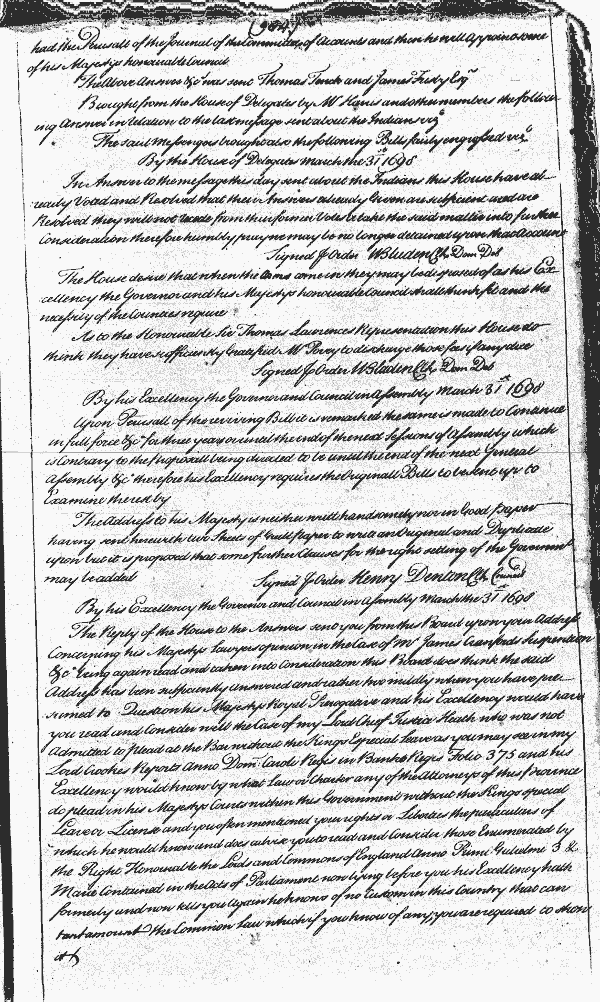 had the Perusall of the Journal of the Committee of Accounts and then he will Appoint some
of his Majestys honourable Council
The Above Answer &c was sent Thomas Tench and James Frisby Esqrs
Brought from the House of Delegates by Mr Harris and other members the follow-
ing Answer in relation to the last message sent about the Indians vizt
The said Messengers brought also the following Bills fairly engrossed vizt
By the House of Delegates March the 31st 1698
In Answer to the message this day sent about the Indians this House have al-
ready Voted and Resolved that their Answer already Given as sufficient and are
Resolved they will not recede from their former Vote & take the said matter into further
Consideration therefore humbly pray we may be no longer detained upon that Account
Signed p Order W Bladen Clk Dom Del
The House desire that when the Arms come in they may be disposed of as his Ex-
cellency the Governor and his Majestys honourable Council shall think fit and the
necessity of the Counties require
As to the Honourable Sir Thomas Laurences Representation this House do
think they have sufficiently Gratified Mr Povey to discharge those fees if any due
Signed p Order W Bladen Clk Dom Del
By his Excellency the Governor and Council in Assembly March 31st 1698
Upon Perusall of the reviving Bill it is remarked the same is made to Continue
in full force &c for three years or until the end of the next Sessions of Assembly which
is Contrary to the Proposall being directed to be until the end of the next General
Assembly &c therefore his Excellency requires the Originall Bills to be sent up to
Examine thereby
The Address to his Majesty is neither writt handsomely nor in Good Paper
having sent herewith two Sheets of Guilt Paper to write an Original and Duplicate
upon but it is proposed that some further Clauses for the right setling of the Governmt
may be added
Signed p Order Henry Denton Clk Council
By his Excellency the Governor and Council in Assembly March the 31st 1698
The Reply of the House to the Answers sent you from this Board upon your Address
Concerning his Majestys Lawyers opinion in the Case of Mr James Cranfords Suspention
&c being again read and taken into Consideration this Board does think the said
Address has been sufficiently answered and rather too mildly when you have pre-
sumed to Question his Majestys Royal Prerogative and his Excellency would have
you read and Consider well the Case of my Lord Chief Justice Heath who was not
Admitted to plead at the Bar without the Kings Especial Leave as you may see in my
Lord Crookes Reports Anno Dom: Carols Regis in Banko Regis Folio 375 and his
Excellency would know by what Law or Charter any of the Attorneys of this Province
do plead in his Majestys Courts within this Government without the Kings special
Leave or License and you often mentioned your rights or Liberties the particulars of
which he would know and does advise you to read and Consider those Enumerated by
the Right Honourable the Lords and Commons of England Anno Primo Gulielmi 3 &
Mariæ Contained in the Acts of Parliament now lying before you his Excellency hath
formerly and now tells you again he knows of no Custom in this Country that can
tantamount the Common Law which if you know of any, you are required to shew
it